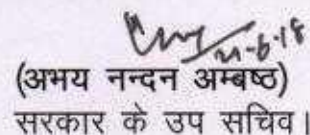 21-6-18
(अभय नन्दन अम्बष्ठ)
सरकार के उप सचिव।